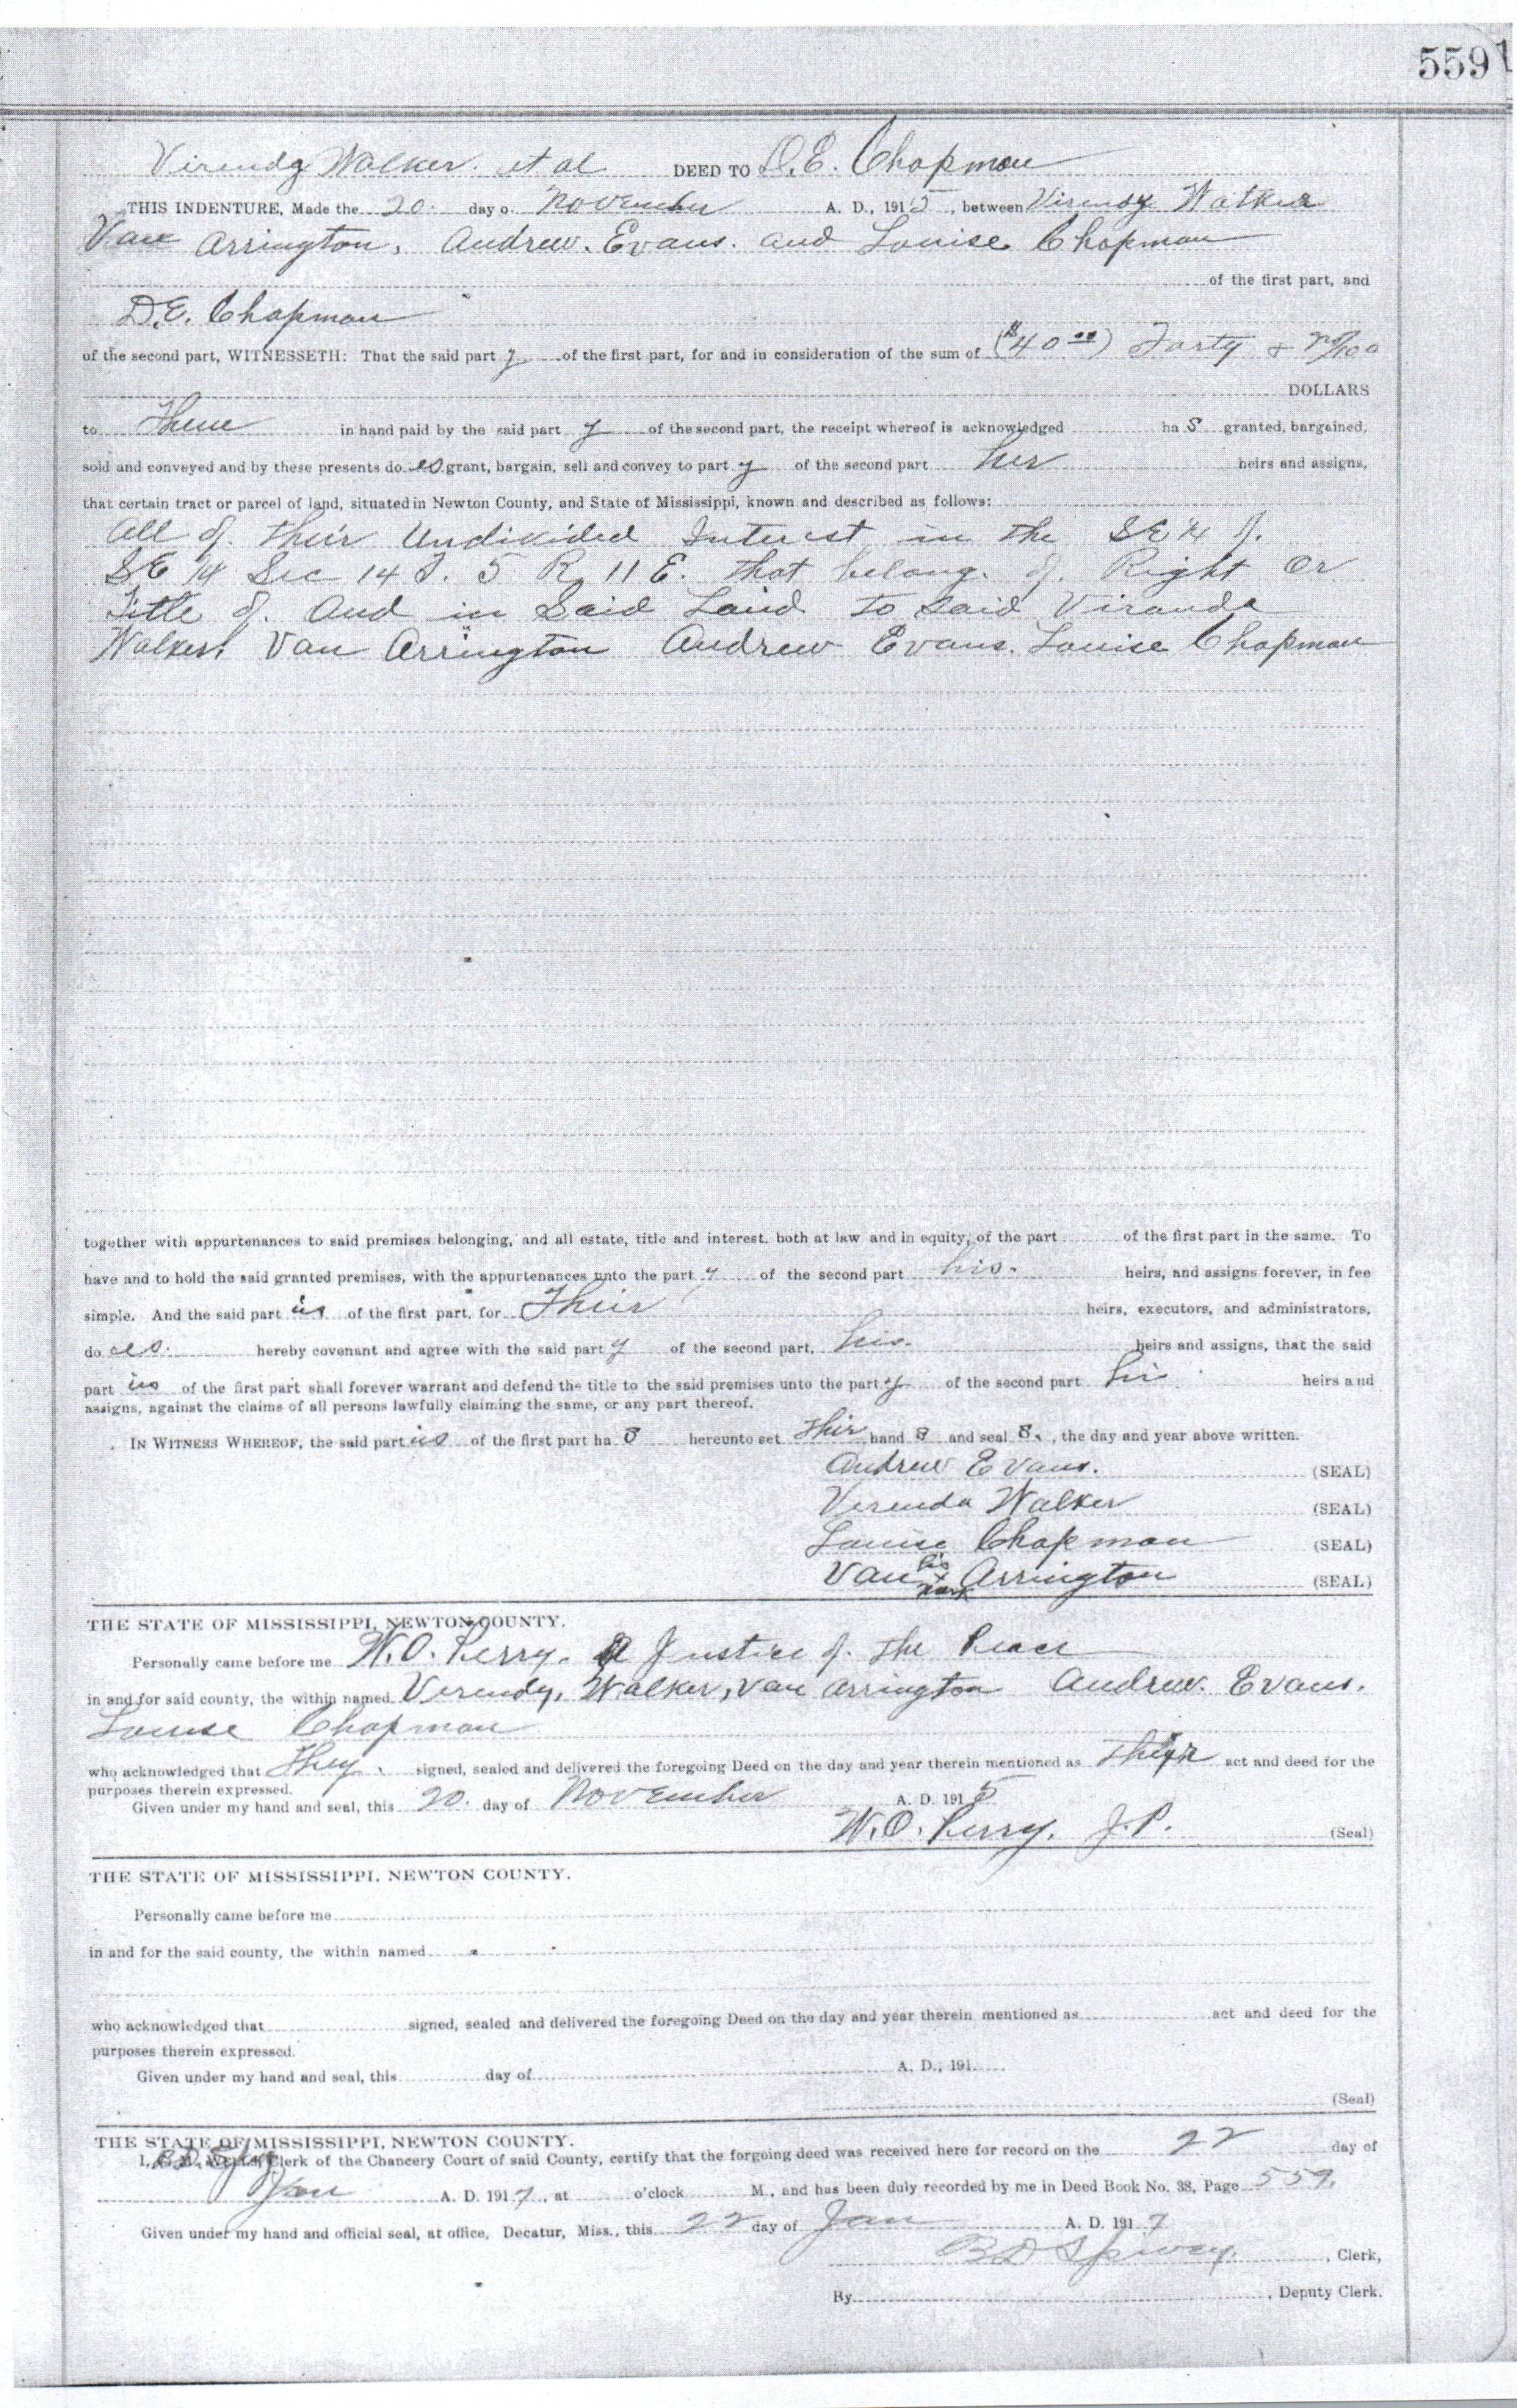 559
Virendy Walker. et al DEED TO D.E. Chapman
THIS INDENTURE, Made the 20. day o November A. D., 1915, between Virendy Walker
Van Arrington, Andrew. Evans. and Louise Chapman
of the first part, and
D.E. Chapman
of the second part, WITNESSETH: That the said part y of the first part, for and in consideration of the sum of ($40 00) Forty & no/100
DOLLARS
to Them in hand paid by the said part y of the second part, the receipt whereof is acknowledged ha s granted, bargained,
sold and conveyed and by these presents do es grant, bargain, sell and convey to part y of the second part her heirs and assigns,
that certain tract or parcel of land, situated in Newton County, and State of Mississippi, known and described as follows:
All of their Undivided Interest in the SE 1/4 of.
SE 1/4 Sec 14 T. 5 R. 11 E. that belong. of. Right Or
Title of. And in Said Land to said Viranda
Walker, Van Arrington Andrew Evans. Louise Chapman
together with appurtenances to said premises belonging, and all estate, title and interest. both at law and in equity, of the part of the first part in the same. To
have and to hold the said granted premises, with the appurtenances unto the part y of the second part his. heirs, and assigns forever, in fee
simple. And the said part is of the first part, for Their heirs, executors, and administrators,
do es. hereby covenant and agree with the said part y of the second part, his. heirs and assigns, that the said
part is of the first part shall forever warrant and defend the title to the said premises unto the part y of the second part heirs and
assigns, against the claims of all persons lawfully claiming the same, or any part thereof.
IN WITNESS WHEREOF, the said part is of the first part ha s hereunto set thir hand s and seal s., the day and year above written.
Andrew Evans. (SEAL)
Verenda Walker (SEAL)
Louise Chapman (SEAL)
Van his x mark Arrington (SEAL)
THE STATE OF MISSISSIPPI, NEWTON COUNTY.
Personally came before me W.O. Perry. A Justice of. the Peace
in and for said county, the within named Virendy, Walker, Van Arrington Andrew. Evans.
Louise Chapman
who acknowledged that They. signed, sealed and delivered the foregoing Deed on the day and year therein mentioned as their act and deed for the
purposes therein expressed.
Given under my hand and seal, this 20. day of November A. D. 1915
W.O. Perry. J.P. (Seal)
THE STATE OF MISSISSIPPI, NEWTON COUNTY.
Personally came before me
in and for the said county, the within named
who acknowledged that signed, sealed and delivered the foregoing Deed on the day and year therein mentioned as act and deed for the
purposes therein expressed.
Given under my hand and seal, this day of A. D., 191
(Seal)
THE STATE OF MISSISSIPPI, NEWTON COUNTY.
I, Clerk of the Chancery Court of said County, certify that the forgoing deed was received here for record on the 22 day of
Jan A. D. 1917, at o'clock M., and has been duly recorded by me in Deed Book No. 38, Page 559.
Given under my hand and official seal, at office, Decatur, Miss., this 22 day of Jan A. D. 1917
B D Spivey. , Clerk,
By , Deputy Clerk.